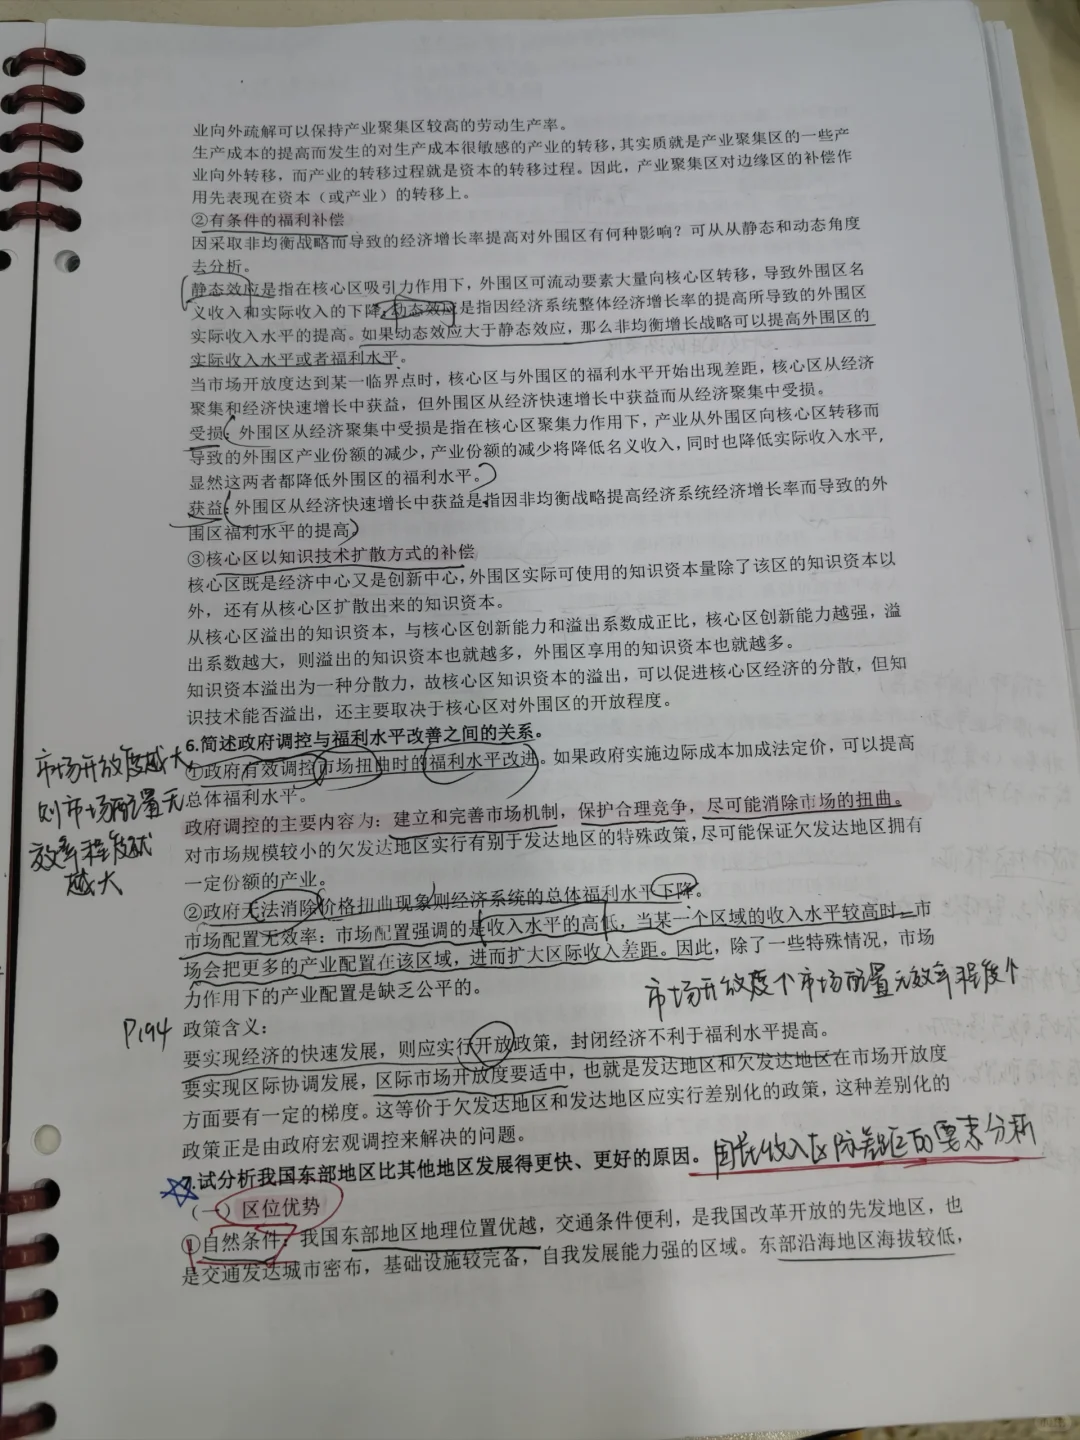 业向外疏解可以保持产业聚集区较高的劳动生产率。
生产成本的提高而发生的对生产成本很敏感的产业的转移，其实质就是产业聚集区的一些产
业向外转移，而产业的转移过程就是资本的转移过程。因此，产业聚集区对边缘区的补偿作
用先表现在资本（或产业）的转移上。
②有条件的福利补偿
因采取非均衡战略而导致的经济增长率提高对外围区有何种影响？可从从静态和动态角度
去分析。
静态效应是指在核心区吸引力作用下，外围区可流动要素大量向核心区转移，导致外围区名
义收入和实际收入的下降；动态效应是指因经济系统整体经济增长率的提高所导致的外围区
实际收入水平的提高。如果动态效应大于静态效应，那么非均衡增长战略可以提高外围区的
实际收入水平或者福利水平。
当市场开放度达到某一临界点时，核心区与外围区的福利水平开始出现差距，核心区从经济
聚集和经济快速增长中获益，但外围区从经济快速增长中获益而从经济聚集中受损。
受损：外围区从经济聚集中受损是指在核心区聚集力作用下，产业从外围区向核心区转移而
导致的外围区产业份额的减少，产业份额的减少将降低名义收入，同时也降低实际收入水平，
显然这两者都降低外围区的福利水平。
获益：外围区从经济快速增长中获益是指因非均衡战略提高经济系统经济增长率而导致的外
围区福利水平的提高。
③核心区以知识技术扩散方式的补偿
核心区既是经济中心又是创新中心，外围区实际可使用的知识资本量除了该区的知识资本以
外，还有从核心区扩散出来的知识资本。
从核心区溢出的知识资本，与核心区创新能力和溢出系数成正比，核心区创新能力越强，溢
出系数越大，则溢出的知识资本也就越多，外围区享用的知识资本也就越多。
知识资本溢出为一种分散力，故核心区知识资本的溢出，可以促进核心区经济的分散，但知
识技术能否溢出，还主要取决于核心区对外围区的开放程度。
6.简述政府调控与福利水平改善之间的关系。
①政府有效调控市场扭曲时的福利水平改进。如果政府实施边际成本加成法定价，可以提高
总体福利水平。
市场开放度越大
则市场配置无
效率程度就
越大
政府调控的主要内容为：建立和完善市场机制，保护合理竞争，尽可能消除市场的扭曲。
对市场规模较小的欠发达地区实行有别于发达地区的特殊政策，尽可能保证欠发达地区拥有
一定份额的产业。
②政府无法消除价格扭曲现象则经济系统的总体福利水平下降。
市场配置无效率：市场配置强调的是收入水平的高低，当某一个区域的收入水平较高时，市
场会把更多的产业配置在该区域，进而扩大区际收入差距。因此，除了一些特殊情况，市场
力作用下的产业配置是缺乏公平的。
市场开放度个市场配置无效率程度个
P194
政策含义：
要实现经济的快速发展，则应实行开放政策，封闭经济不利于福利水平提高。
要实现区际协调发展，区际市场开放度要适中，也就是发达地区和欠发达地区在市场开放度
方面要有一定的梯度。这等价于欠发达地区和发达地区应实行差别化的政策，这种差别化的
政策正是由政府宏观调控来解决的问题。
7.试分析我国东部地区比其他地区发展得更快、更好的原因。
收入区际差距的要素分析
（一）区位优势
①自然条件：我国东部地区地理位置优越，交通条件便利，是我国改革开放的先发地区，也
是交通发达城市密布，基础设施较完备，自我发展能力强的区域。东部沿海地区海拔较低，